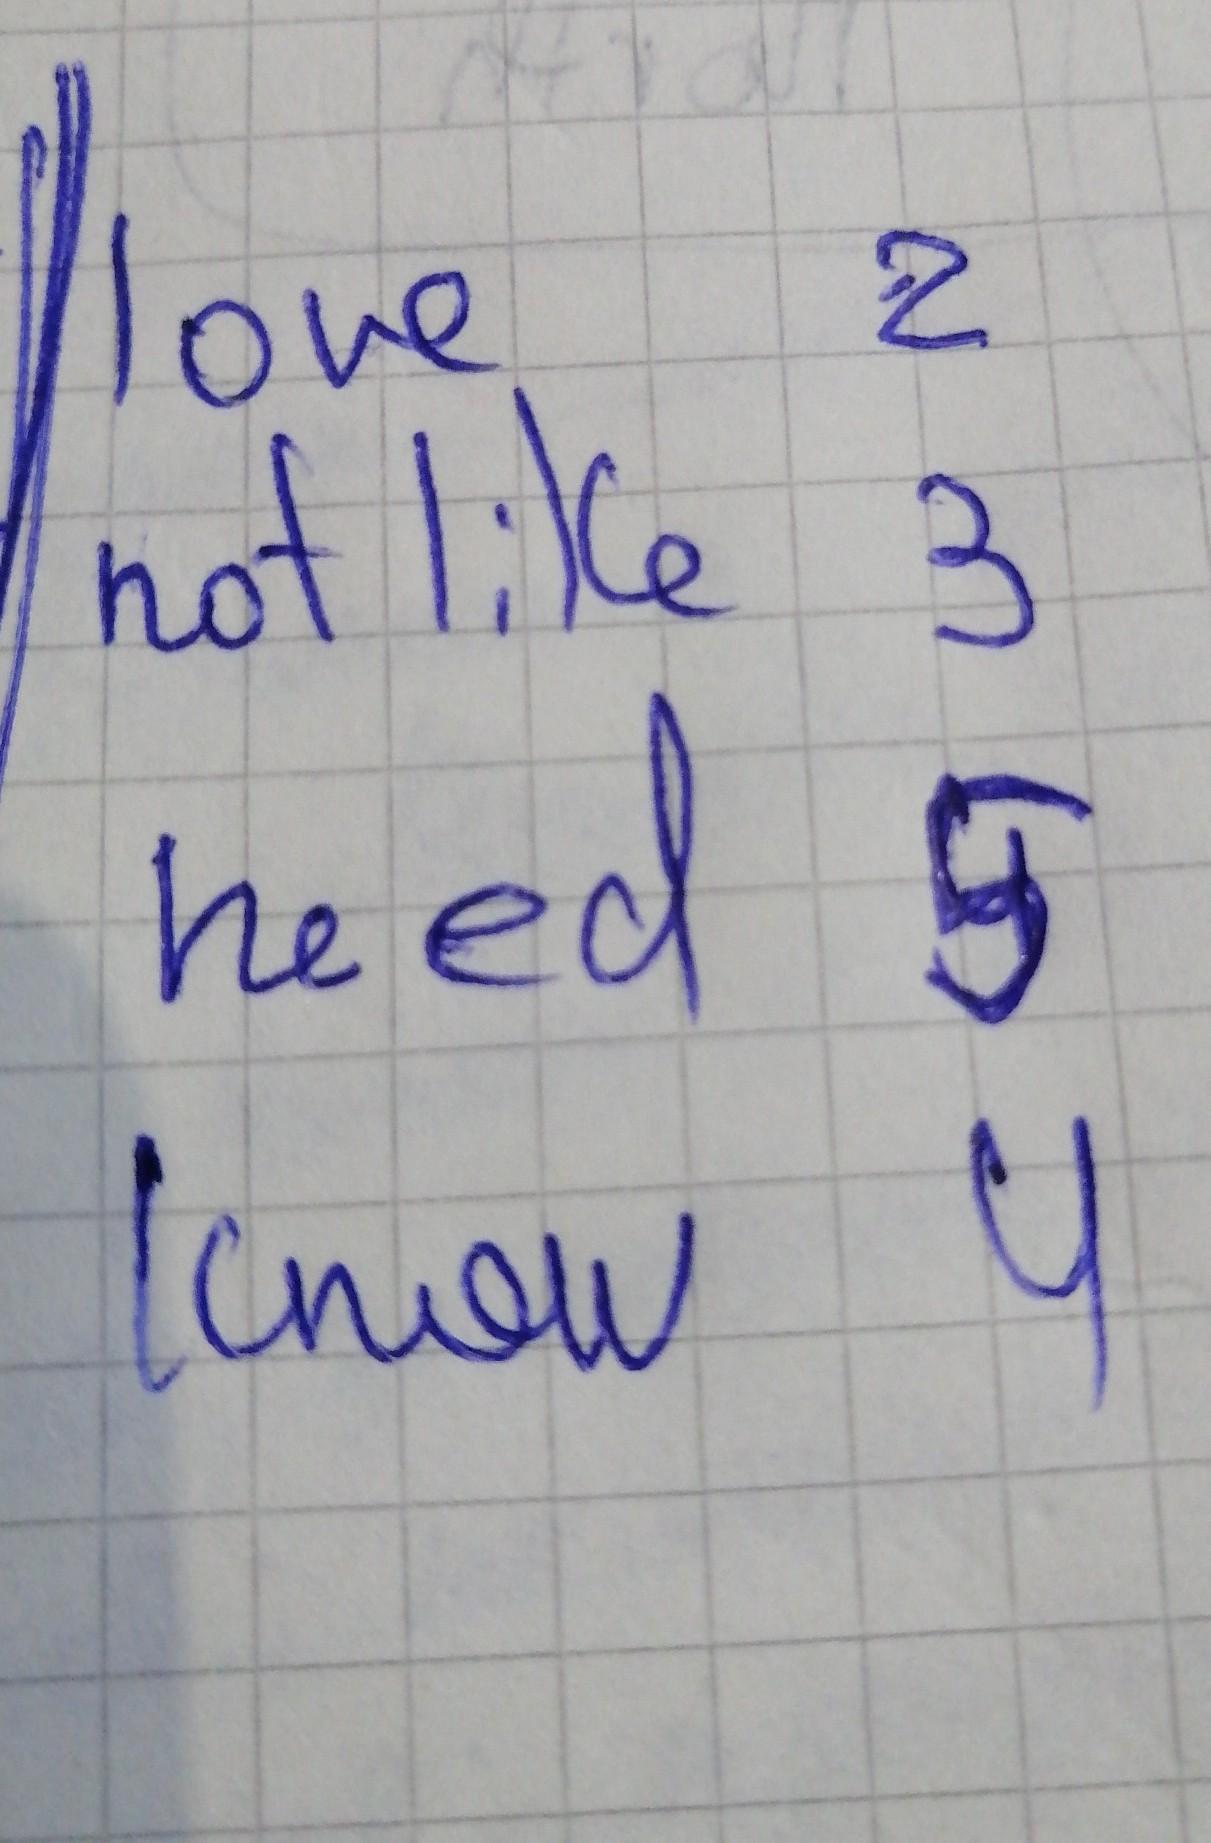 love 2
not like 3
need 5
know 4